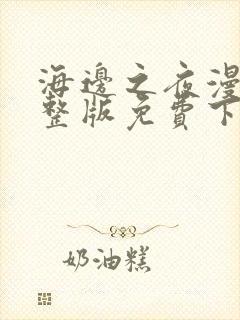 海邊之夜漫
整版免費下
奶油糕